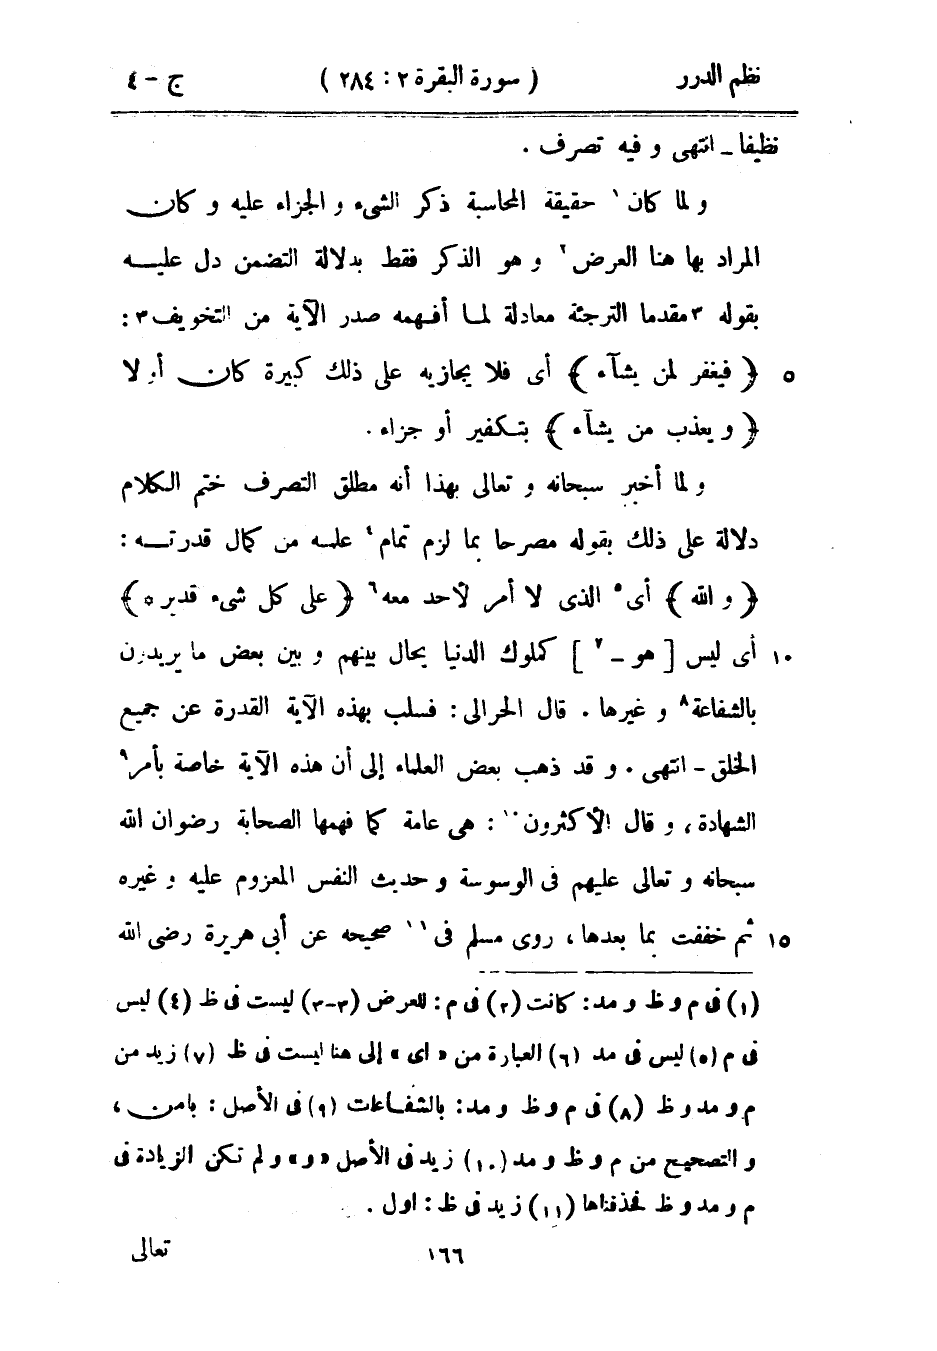 نظم الدرر ( سورة البقرة ٢ : ٢٨٤ ) ج - ٤
نظيفا ـ انتهى و فيه تصرف .
و لما كان ١ حقيقة المحاسبة ذكر الشىء و الجزاء عليه و كان
المراد بها هنا العرض ٢ و هو الذكر فقط بدلالة التضمن دل عليه
بقوله ٣ مقدما الترجئة معادلة لما أفهمه صدر الآية من التخويف ٣ :
٥ ﴿ فيغفر لمن يشآء ﴾ أى فلا يجازيه على ذلك كبيرة كان أو لا
﴿ و يعذب من يشآء ﴾ بتكفير أو جزاء .
و لما أخبر سبحانه و تعالى بهذا أنه مطلق التصرف ختم الكلام
دلالة على ذلك بقوله مصرحا بما لزم تمام ٤ علمه من كمال قدرته :
﴿ و الله ﴾ أى ٥ الذى لا أمر لأحد معه ٦ ﴿ على كل شىء قدير * ﴾
١٠ أى ليس [ هو ـ ٧ ] كملوك الدنيا يحال بينهم و بين بعض ما يريدون
بالشفاعة ٨ و غيرها . قال الحرالى : فسلب بهذه الآية القدرة عن جميع
الخلق - انتهى . و قد ذهب بعض العلماء إلى أن هذه الآية خاصة بأمر ٩
الشهادة ، و قال الأكثرون ١٠ : هى عامة كما فهمها الصحابة رضوان الله
سبحانه و تعالى عليهم فى الوسوسة و حديث النفس المعزوم عليه و غيره
١٥ ثم خففت بما بعدها ، روى مسلم فى ١١ صحيحه عن أبى هريرة رضى الله
(١) فى م و ظ و مد : كانت (٢) فى م : للعرض (٣-٣) ليست فى ظ (٤) ليس
فى م (٥) ليس فى مد (٦) العبارة من « اى » إلى هنا ليست فى ظ (٧) زيد من
م و مد و ظ (٨) فى م و ظ و مد : بالشفاعات (٩) فى الأصل : بامن ،
و التصحيح من م و ظ و مد (١٠) زيد فى الأصل « و » و لم تكن الزيادة فى
م و مد و ظ فحذفناها (١١) زيد فى ظ : اول .
١٦٦ تعالى